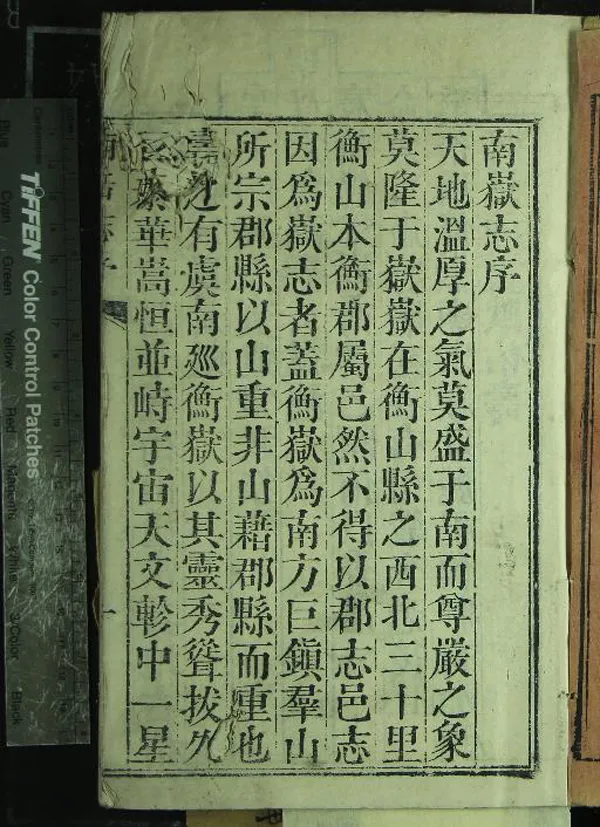 南嶽志序
天地溫厚之氣莫盛于南而尊嚴之象
莫隆于嶽嶽在衡山縣之西北三十里
衡山本衡郡屬邑然不得以郡志邑志
因爲嶽志者蓋衡嶽爲南方巨鎮羣山
所宗郡縣以山重非山藉郡縣而重也
有虞南廵衡嶽以其靈秀聳拔
華嵩恒並峙宇宙天文軫中一星
一
TIFFEN Color Control Patches
Blue
Cyan
Green
Yellow
Red
Magenta
White
3/Color
Black